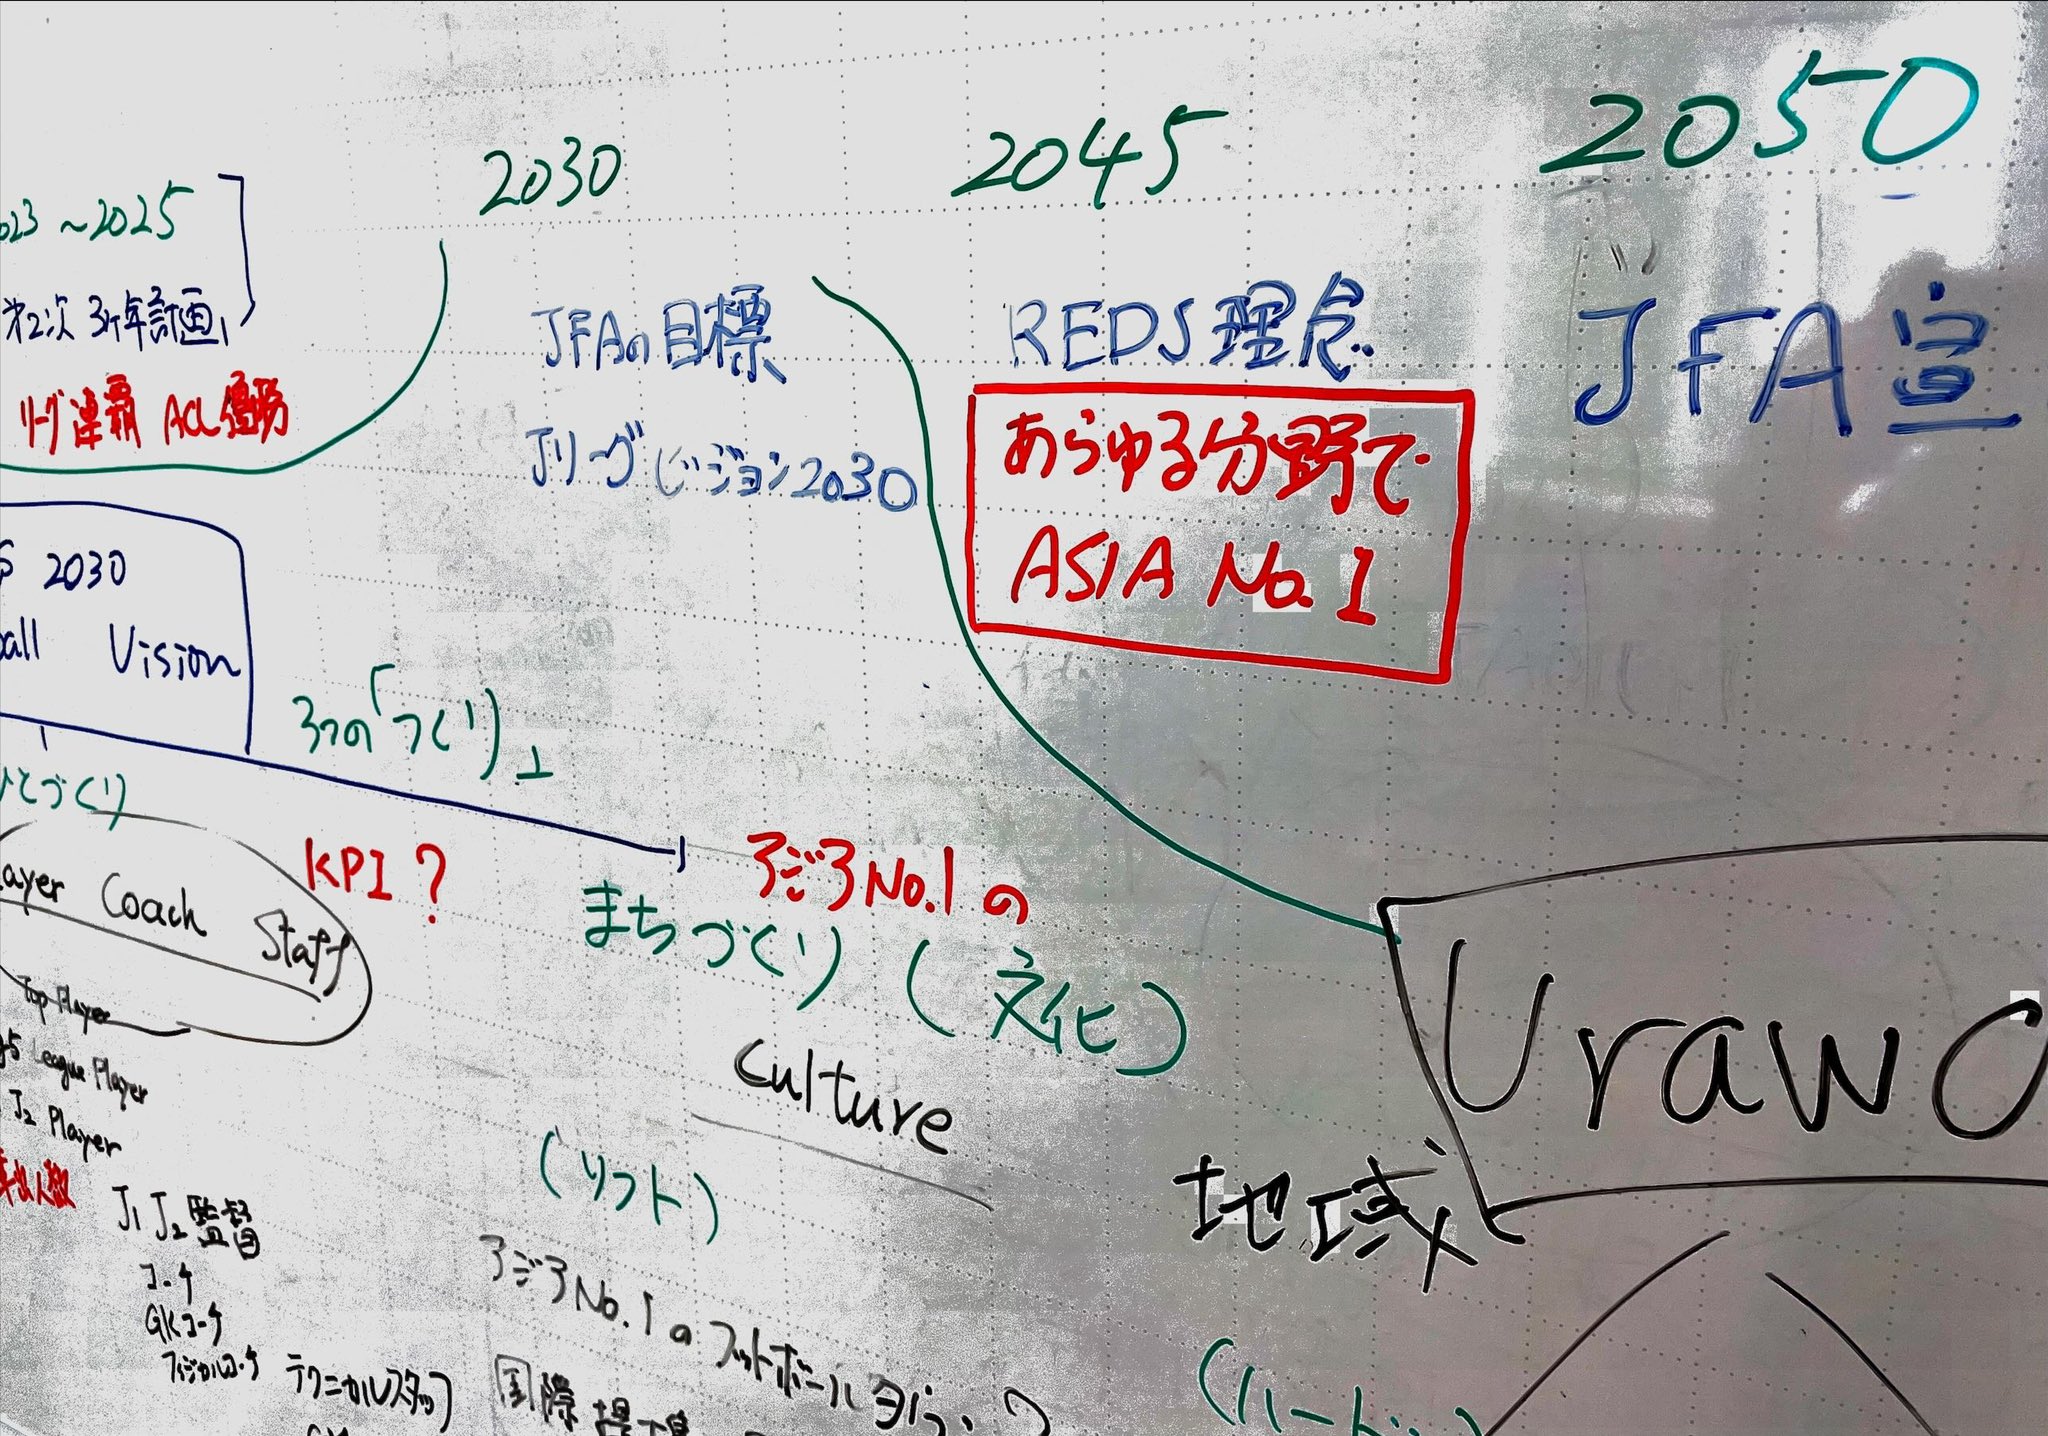 2030
2045
2050
~2025
第2次 3ヶ年計画
リーグ連覇 ACL優勝
JFAの目標
Jリーグビジョン2030
REDS理念
あらゆる分野で
ASIA No.1
JFA宣
2030
Vision
3つの「づくり」
ひとづくり
KPI?
アジアNo.1の
まちづくり(文化)
Culture
(ソフト)
Coach Staff
Top Player
League Player
J2 Player
J1 J2 監督
コーチ
GKコーチ
フィジカルコーチ
テクニカルスタッフ
アジアNo.1のフットボール
国際
地域
(ハード